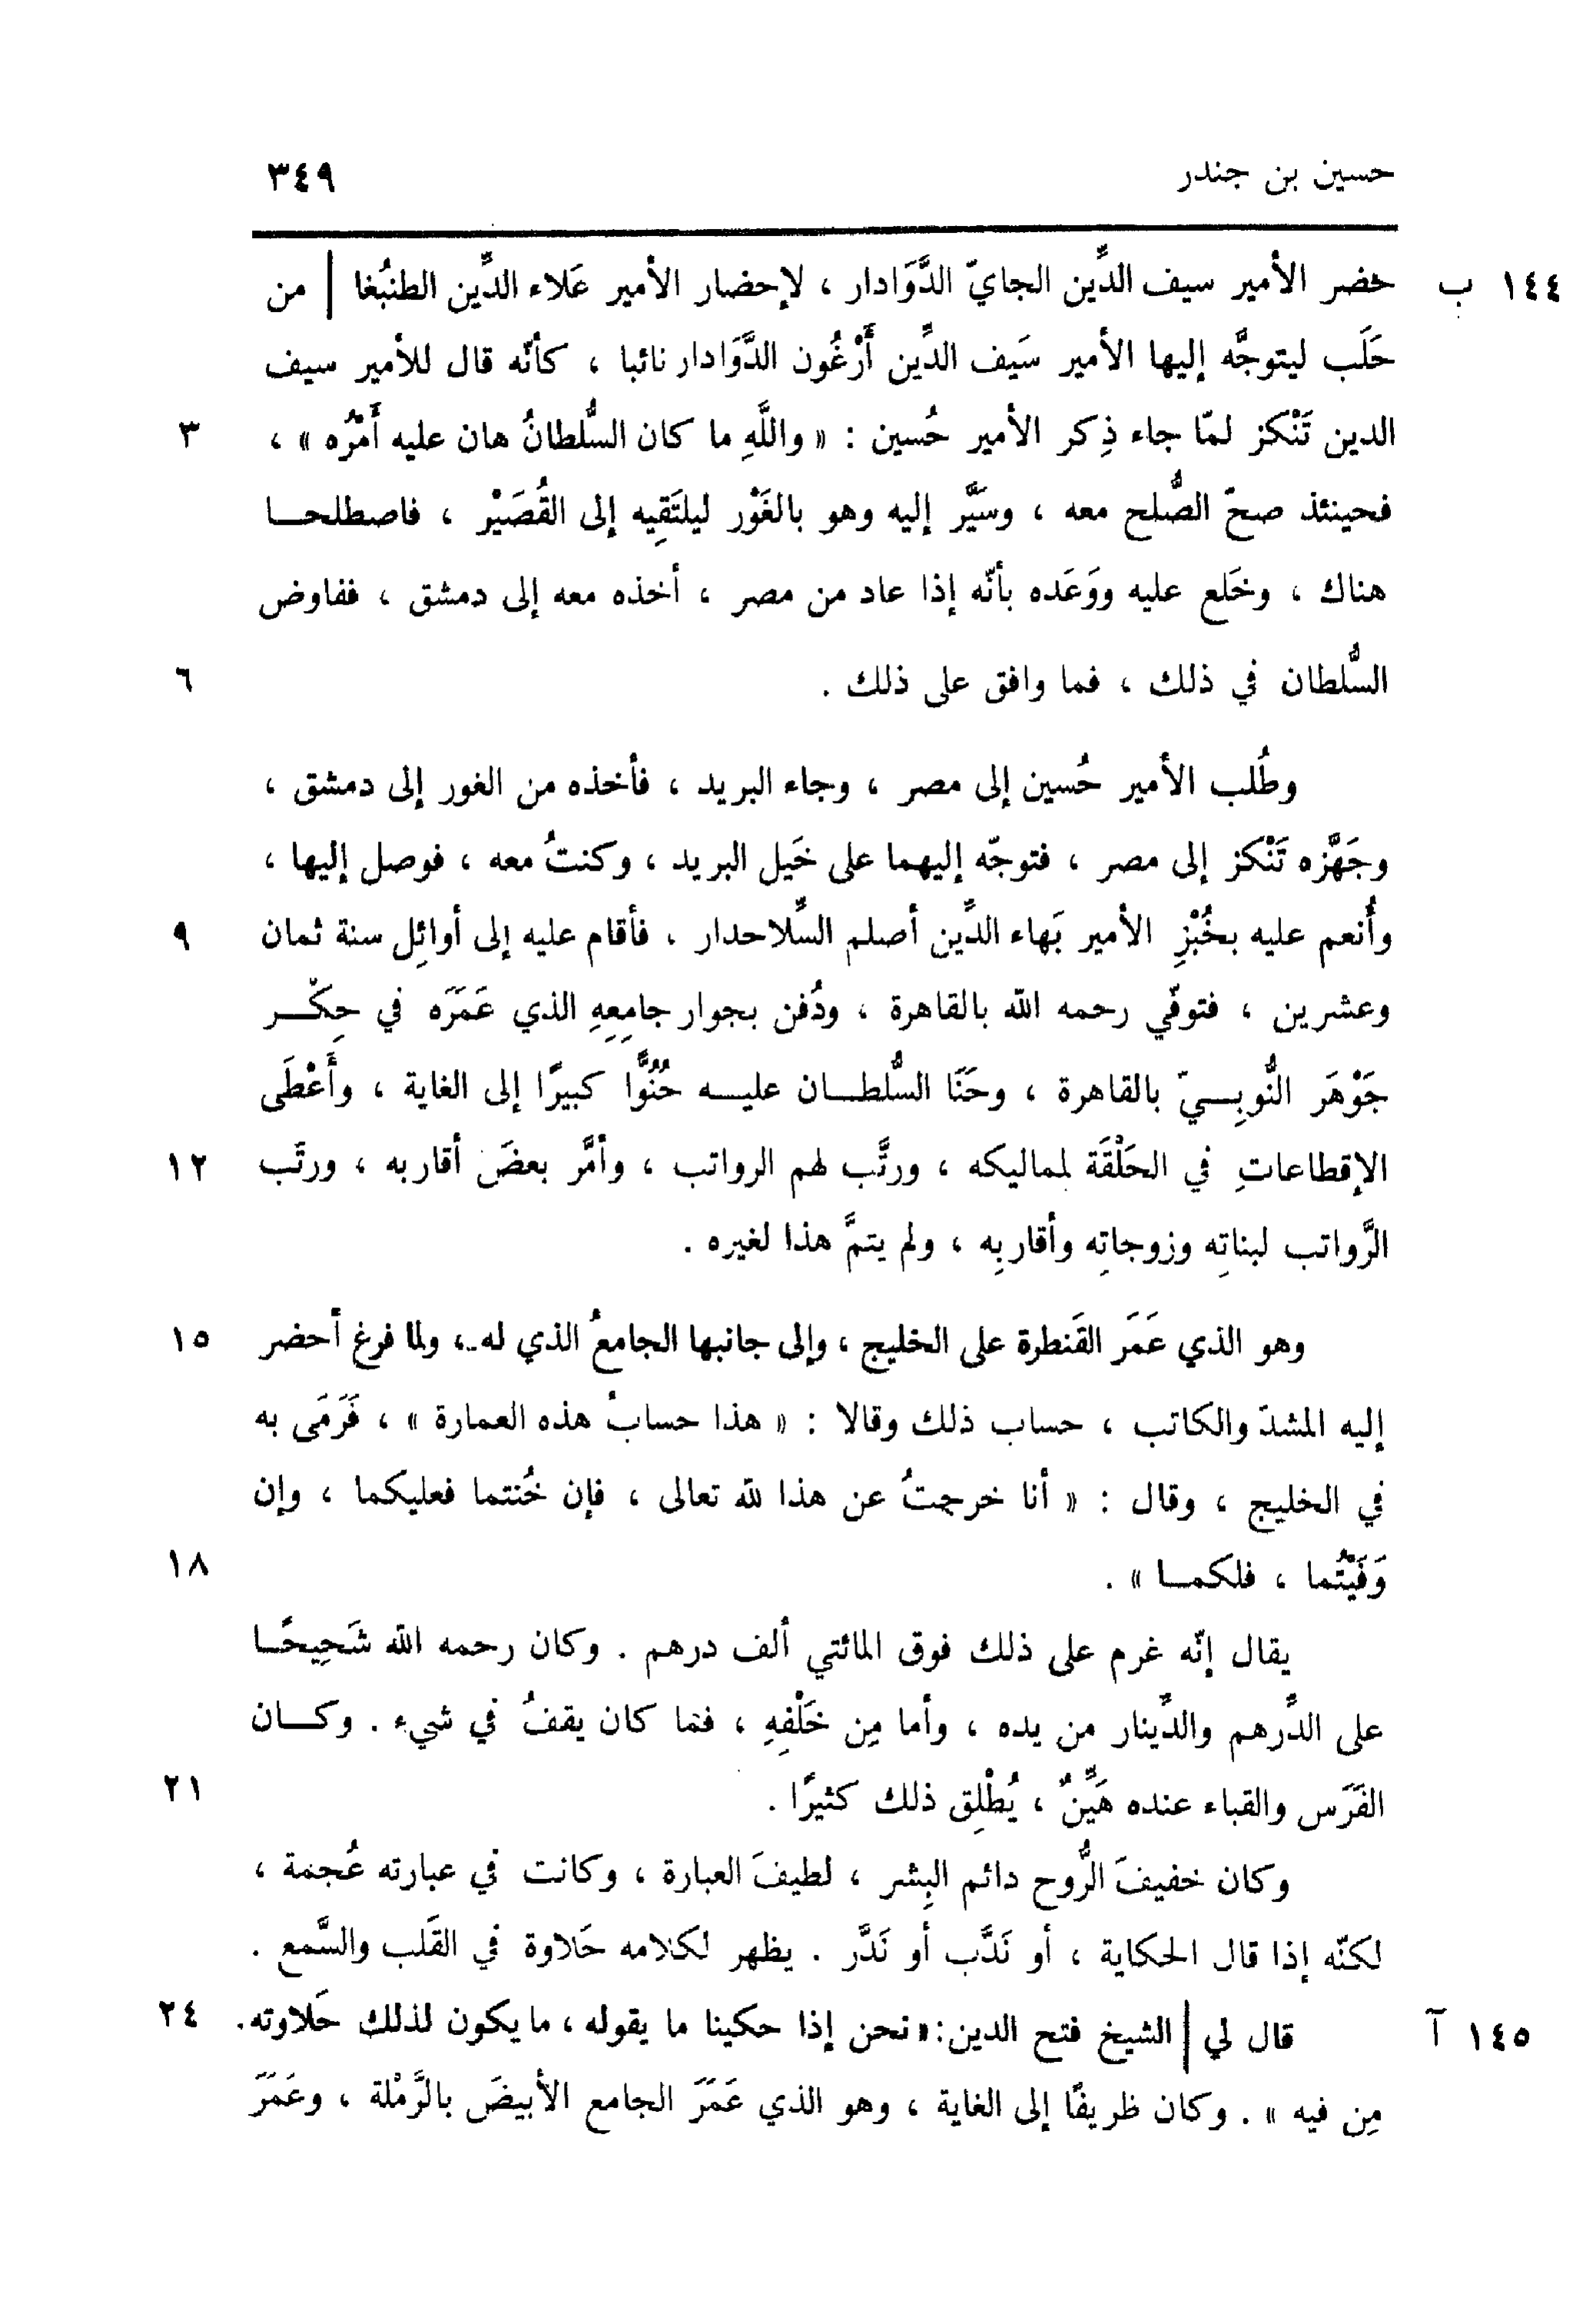 حسين بن جندر ٣٤٩
١٤٤ ب حضر الأمير سيف الدِّين الجايّ الدَّوَادار ، لإحضار الأمير عَلاء الدِّين الطنبُغا | من
حَلَب ليتوجَّه إليها الأمير سَيف الدِّين أَرْغُون الدَّوَادار نائبا ، كأنّه قال للأمير سيف
الدين تَنْكز لمّا جاء ذِكر الأمير حُسين : « واللَّهِ ما كان السُّلطانُ هان عليه أَمْرُه » ، ٣
فحينئذ صحّ الصُّلح معه ، وسَيَّر إليه وهو بالغَوْر ليلتَقِيه إلى القُصَيْر ، فاصطلحا
هناك ، وخَلع عليه ووَعَده بأنّه إذا عاد من مصر ، أخذه معه إلى دمشق ، ففاوض
السُّلطان في ذلك ، فما وافق على ذلك . ٦
وطُلب الأمير حُسين إلى مصر ، وجاء البريد ، فأخذه من الغور إلى دمشق ،
وجَهَّزه تَنْكز إلى مصر ، فتوجّه إليهما على خَيل البريد ، وكنتُ معه ، فوصل إليها ،
وأُنعم عليه بخُبْزِ الأمير بَهاء الدِّين أصلم السِّلاحدار ، فأقام عليه إلى أوائِل سنة ثمان ٩
وعشرين ، فتوفّي رحمه الله بالقاهرة ، ودُفن بجوار جامِعِهِ الذي عَمَرَه في حِكْر
جَوْهَر النُّوبِيّ بالقاهرة ، وحَنَا السُّلطان عليه حُنُوًّا كبيرًا إلى الغاية ، وأَعْطَى
الإقطاعاتِ في الحَلْقَة لمماليكه ، ورتَّب لهم الرواتب ، وأمَّر بعضَ أقاربه ، ورتَّب ١٢
الرَّواتب لبناتِه وزوجاتِه وأقاربِه ، ولم يتمَّ هذا لغيره .
وهو الذي عَمَر القَنطرة على الخليج ، وإلى جانبها الجامعُ الذي له ، ولما فرغ أحضر ١٥
إليه المشدّ والكاتب ، حساب ذلك وقالا : « هذا حسابُ هذه العمارة » ، فَرَمَى به
في الخليج ، وقال : « أنا خرجتُ عن هذا لله تعالى ، فإن خُنتما فعليكما ، وإن
وَفَيْتُما ، فلكما » . ١٨
يقال إنّه غرم على ذلك فوق المائتي ألف درهم . وكان رحمه الله شَحِيحًا
على الدِّرهم والدِّينار من يده ، وأما مِن خَلْفِهِ ، فما كان يقفُ في شيء . وكان
الفَرَس والقباء عنده هَيِّنٌ ، يُطْلِق ذلك كثيرًا . ٢١
وكان خفيفَ الرُّوح دائم البِشر ، لطيفَ العبارة ، وكانت في عبارته عُجمة ،
لكنّه إذا قال الحكاية ، أو نَدَّب أو نَدَّر . يظهر لكلامه حَلاوة في القَلب والسَّمع .
١٤٥ آ قال لي | الشيخ فتح الدين : « نحن إذا حكينا ما يقوله ، ما يكون لذلك حَلاوته . ٢٤
مِن فيه » . وكان ظريفًا إلى الغاية ، وهو الذي عَمَرَ الجامع الأبيضَ بالرَّمْلة ، وعَمَرَ